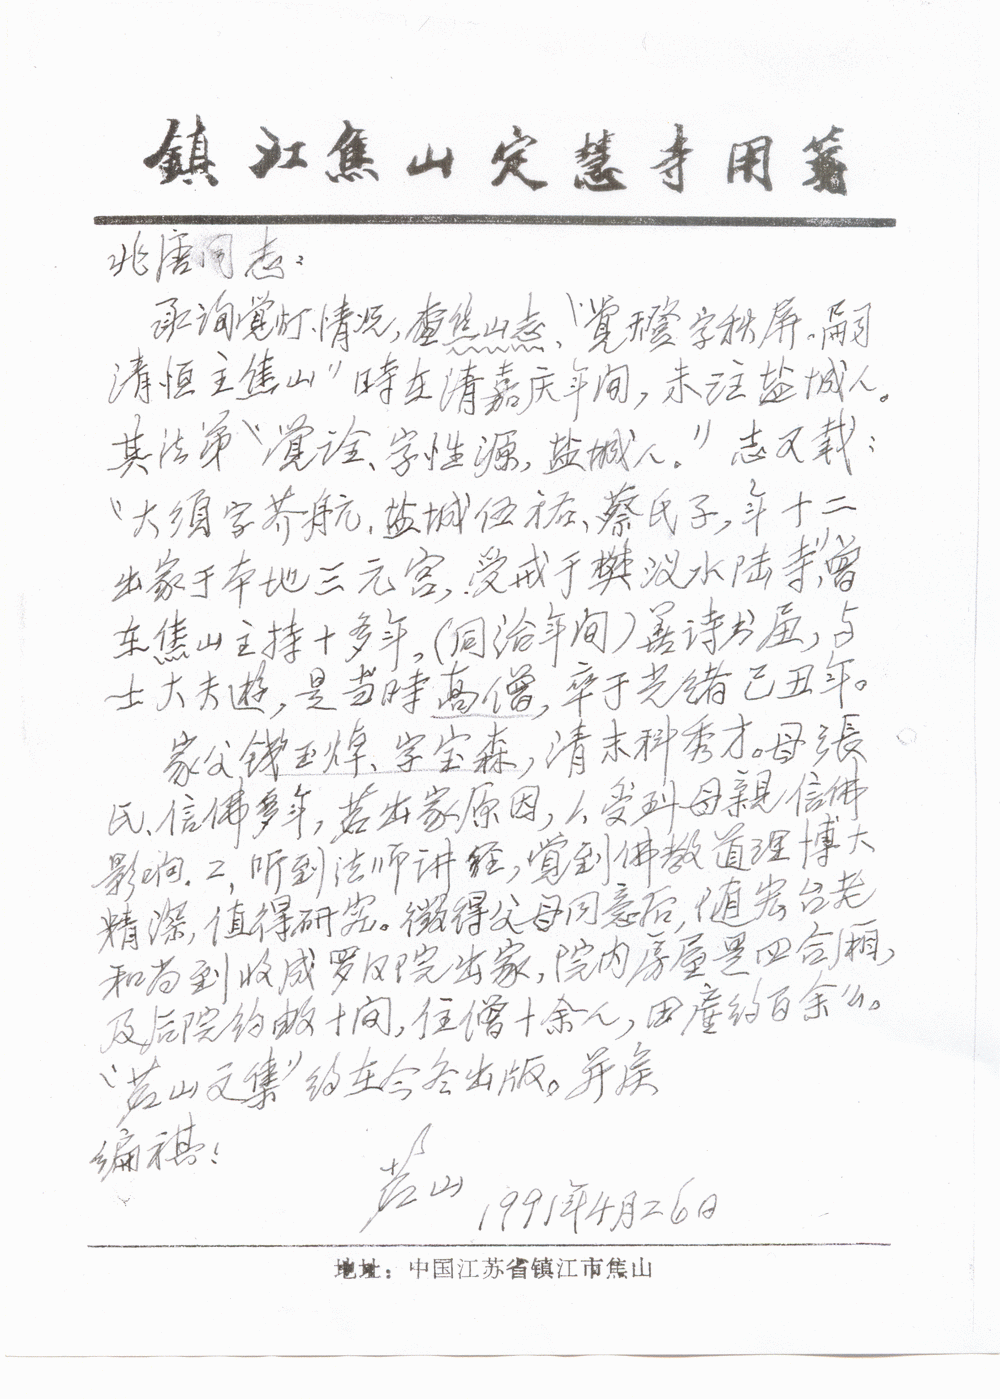 鎮江焦山定慧寺用箋
兆唐同志：
承询觉灯、情况，查焦山志、“觉璒字秋屏。嗣
清恒主焦山”時在清嘉庆年间，未注盐城人。
其法弟“觉诠、字性源，盐城人。”志又载：
“大须字芥航、盐城伍祐、蔡氏子，年十二
出家于本地三元宫，受戒于樊汊水陆寺，曾
在焦山主持十多年。（同治年间）善诗书画，与
士大夫遊，是当時高僧，卒于光绪己丑年。
家父钱玉焯、字宝森，清末科秀才。母張
氏、信佛多年，茗出家原因，1、受到母親信佛
影响．二，听到法师讲經，覚到佛教道理博大
精深，值得研究。徵得父母同意后，随宏台老
和尚到收成罗汉院出家，院内房屋是四合厢，
及后院约数十间，住僧十余人，田產约百余
“茗山文集”约在今冬出版。并候
编祺！
茗山
1991年4月26日
地址：中国江苏省镇江市焦山